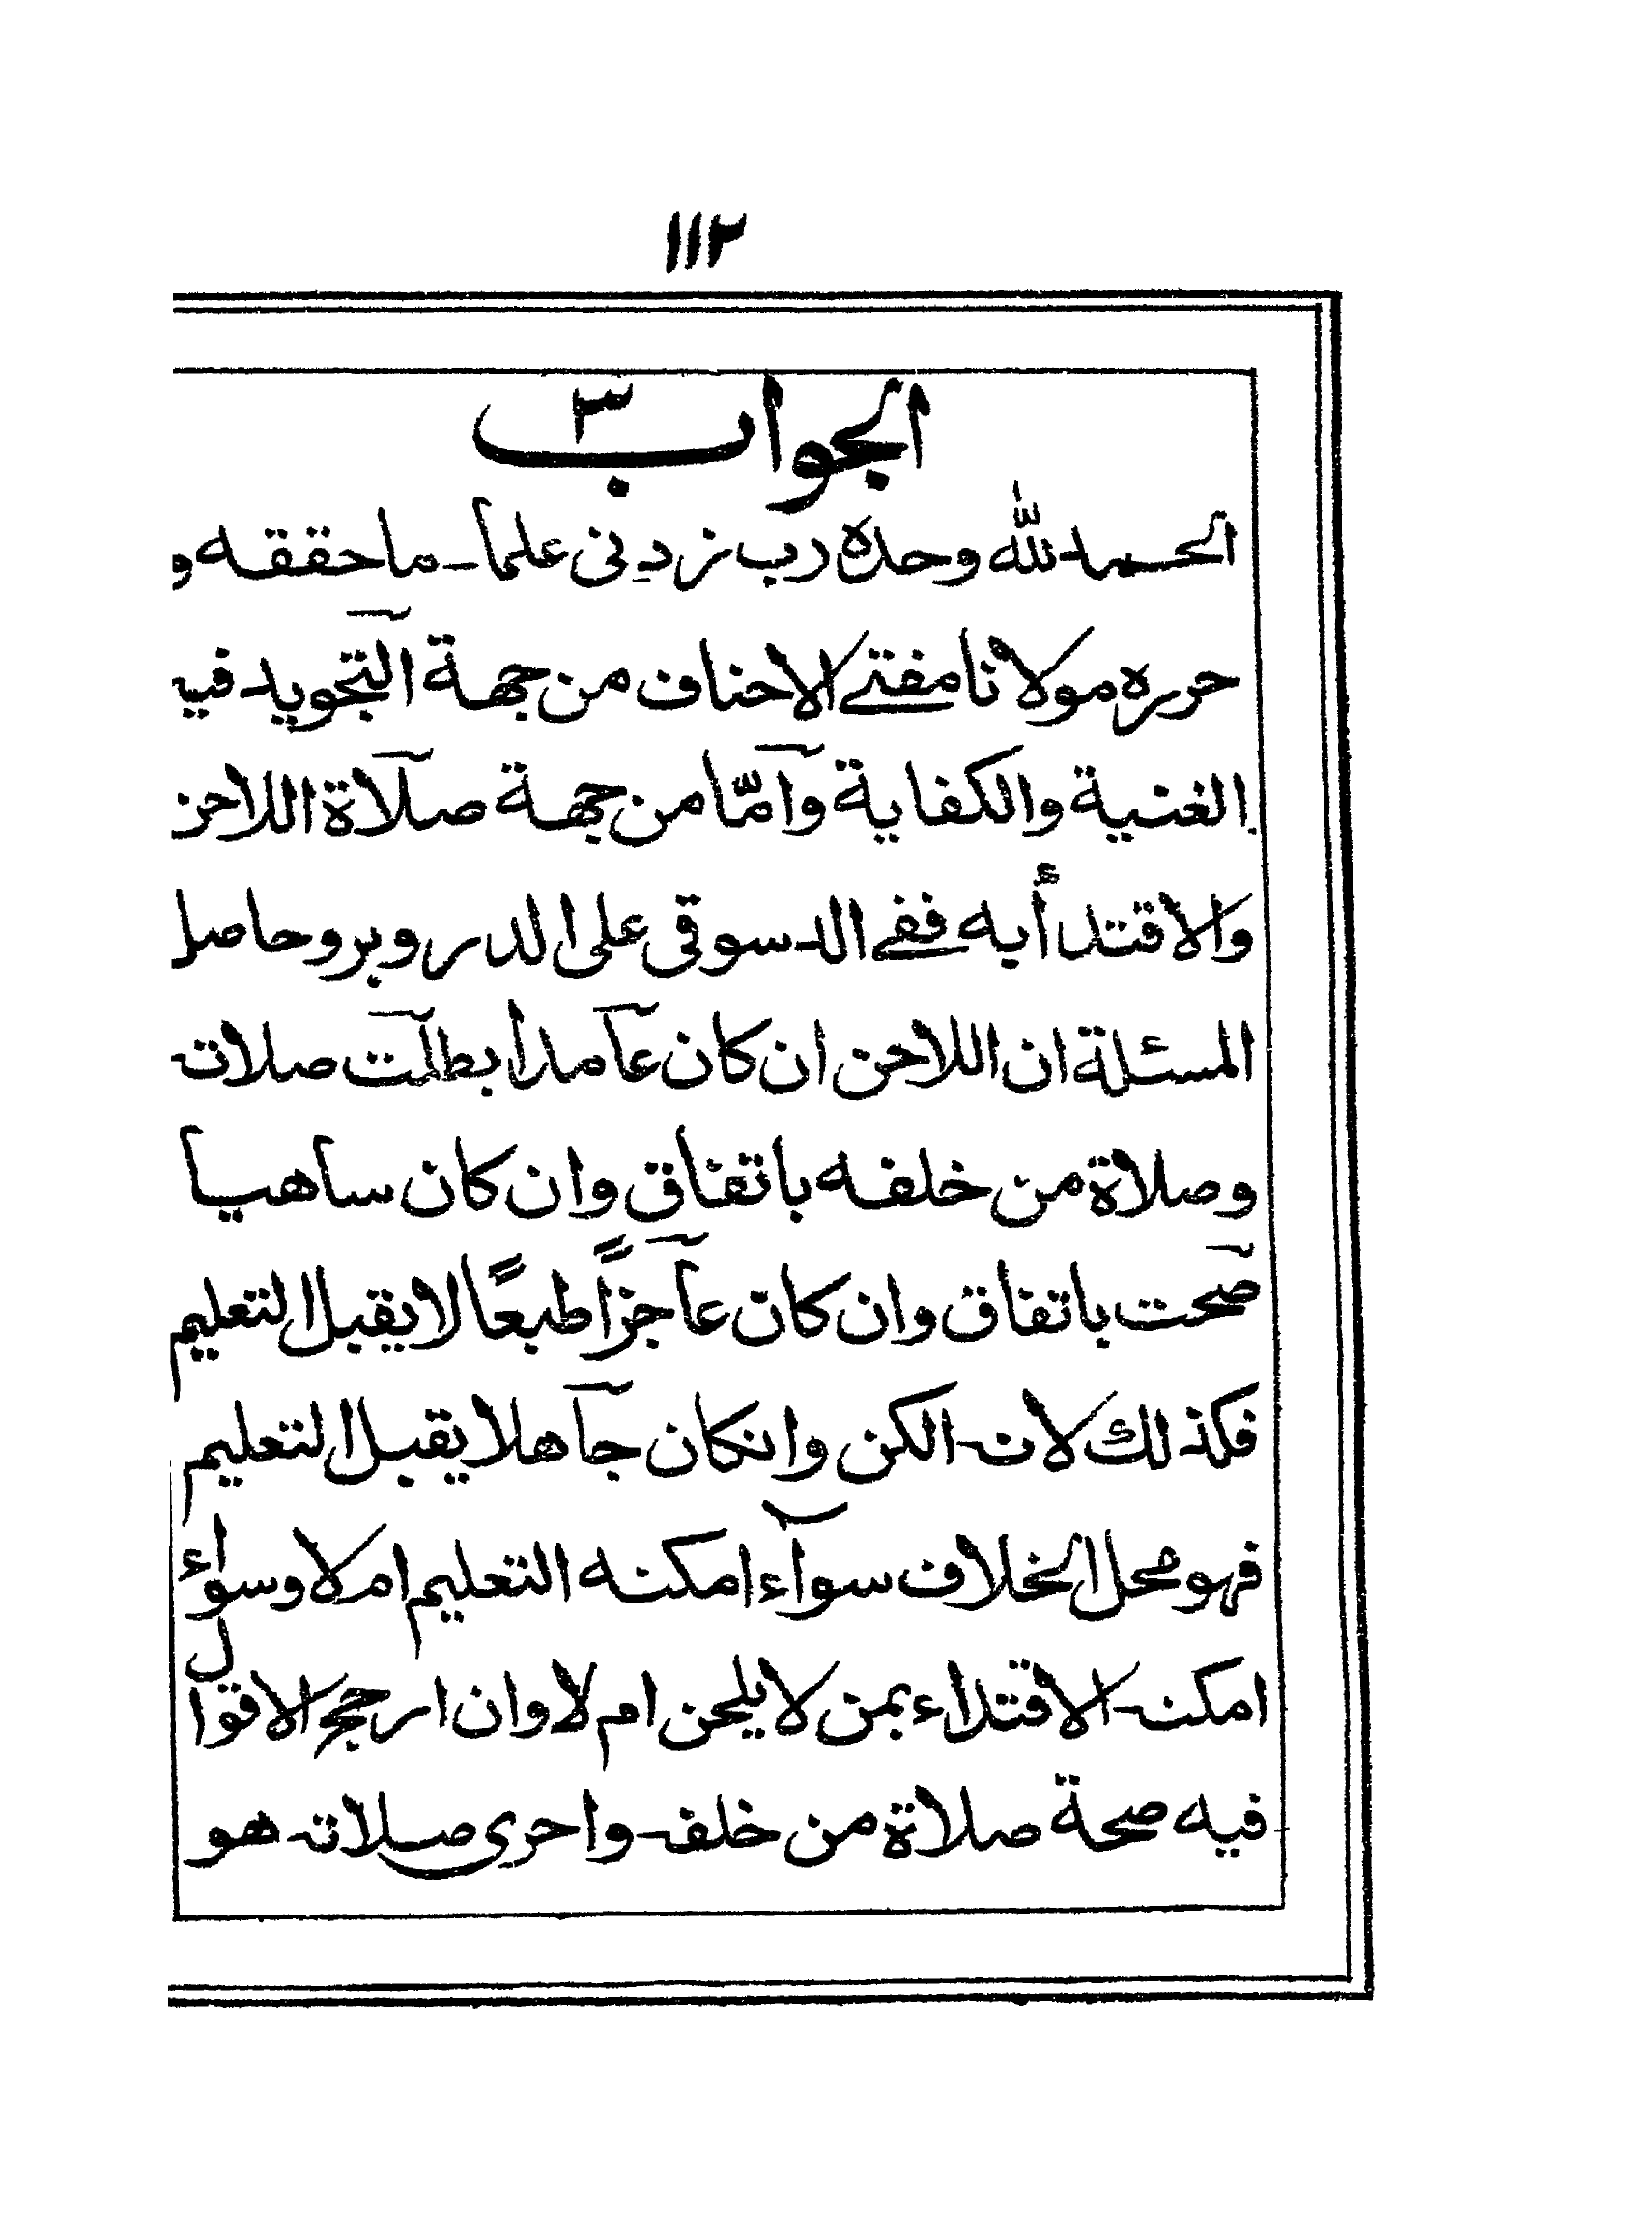 ١١٢
الجواب ٣
الحمد لله وحده رب زدنى علما ـ ما حققه و
حرره مولانا مفتے الاحناف من جهة التجويد فيه
الغنية والكفاية وامّا من جهة صلاة اللاحن
والاقتدأ به ففے الدسوقى على الدردير وحاصل
المسئلة ان اللاحن ان كان عامدا بطلت صلاته
وصلاة من خلفه باتفاق وان كان ساهيا
صحت باتفاق وان كان عاجزاً طبعًا لا يقبل التعليم
فكذلك لانه الكن وانكان جاهلا يقبل التعليم
فهو محل الخلاف سوآء امكنه التعليم ام لا وسواء
امكنه الاقتداء بمن لا يلحن ام لا وان ارجح الاقوال
فيه صحة صلاة من خلفه واحرى صلاته هو